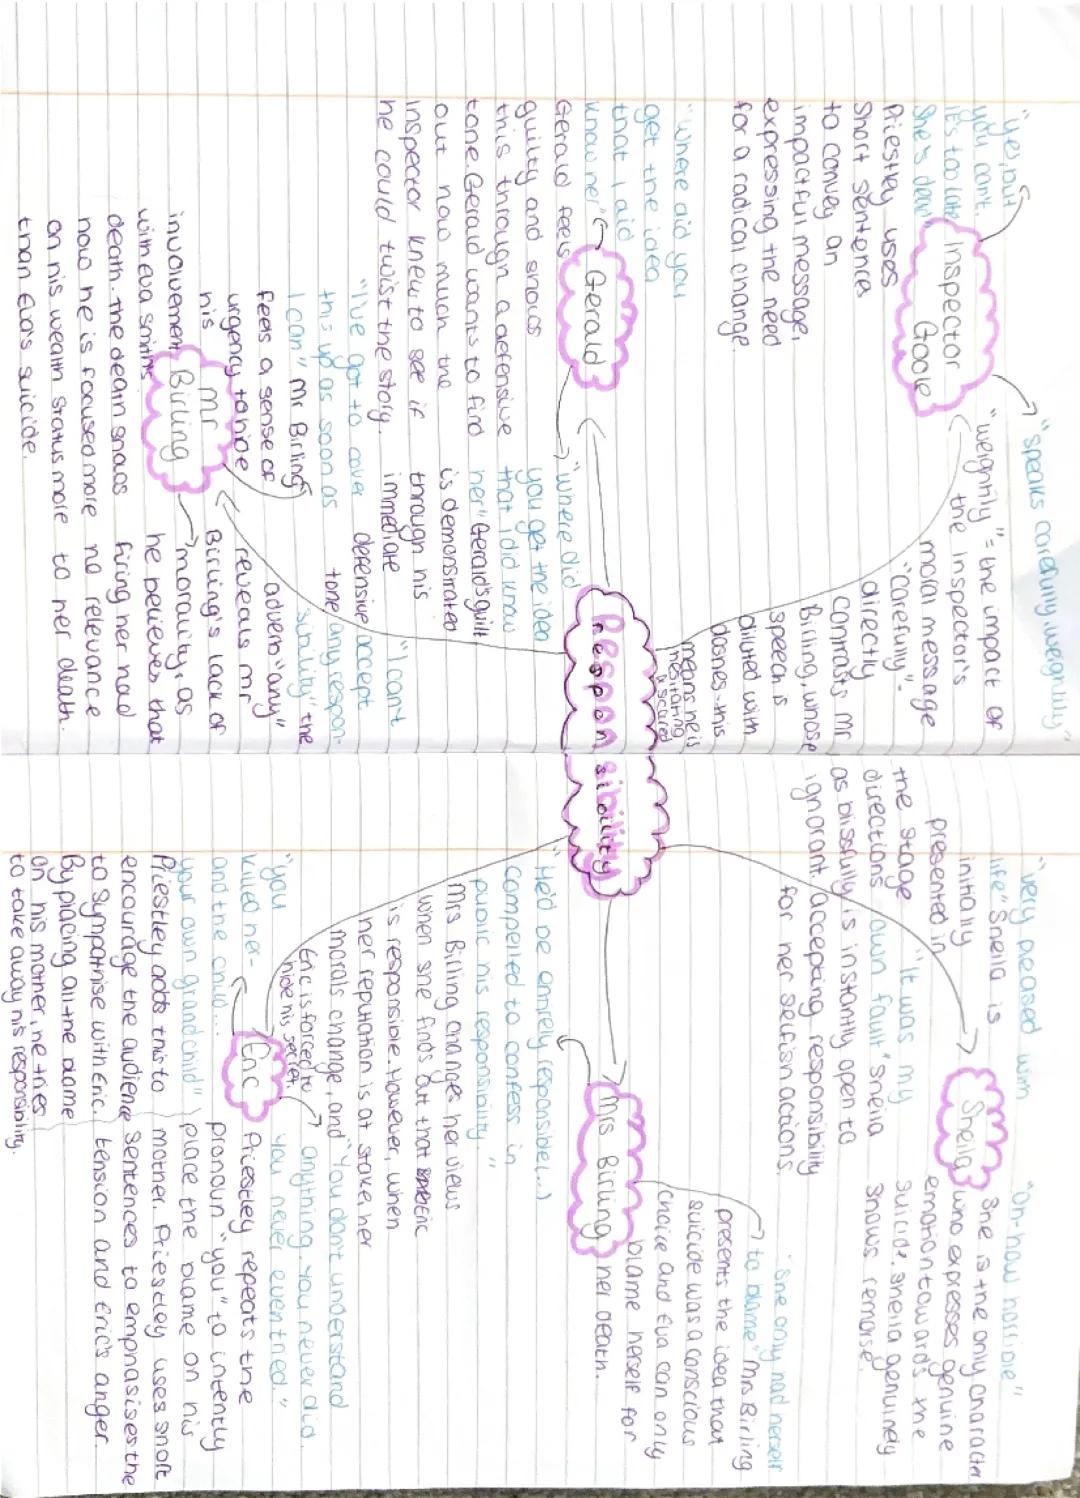 Responsibility
Inspector
Goole
"yes, but
you can't.
it's too late
she's dead"
Priestley uses
short sentences
to convey an
impactful message,
expressing the need
for a radical change.
"speaks carefully, weightily"
"weightily" = the impact of
the inspector's
moral message
"carefully".
directly
contrasts Mr
Birling, whose
speech is
diluted with
dashes - this
means he is
hesitating
& scared
Gerald
"where did you
get the idea
that I did
know her"
Gerald feels
guilty and shows
this through a defensive
tone. Gerald wants to find
out how much the
inspector knew to see if
he could twist the story.
"where did
you get the idea
that I did know
her" Gerald's guilt
is demonstrated
through his
immediate
defensive
tone
Mr
Birling
"I've got to cover
this up as soon as
I can" Mr Birling
feels a sense of
urgency to hide
his
involvement
with eva smiths
death. The death shows
how he is focused more
on his wealth status more
than Eva's suicide.
"I can't
accept
any respon-
sibility" the
adverb "any"
reveals mr
Birling's lack of
morality, as
he believes that
firing her had
no relevance
to her death.
Sheila
"very pleased with
life" Sheila is
initially
presented in
the stage
directions
as blissfully
ignorant.
"It was my
own fault" sheila
is instantly open to
accepting responsibility
for her selfish actions.
"oh - how horrible"
She is the only character
who expresses genuine
emotion towards the
suicide. sheila genuinely
shows remorse
Mrs Birling
"He'd be entirely responsible(...)
compelled to confess in
public his responsibility"
Mrs Birling changes her views
when she finds out that Eric
is responsible. However, when
her reputation is at stake, her
morals change, and
Eric is forced to
hide his secret.
"she only had herself
to blame" Mrs Birling
presents the idea that
suicide was a conscious
choice and Eva can only
blame herself for
her death.
Eric
"you
killed her-
and the child...
your own grandchild"
Priestley adds this to
encourage the audience
to sympathise with Eric.
By placing all the blame
on his mother, he tries
to take away his responsibility.
"You don't understand
anything. You never did.
You never even tried."
Priestley repeats the
pronoun "you" to intently
place the blame on his
mother. Priestley uses short
sentences to emphasises the
tension and Eric's anger.